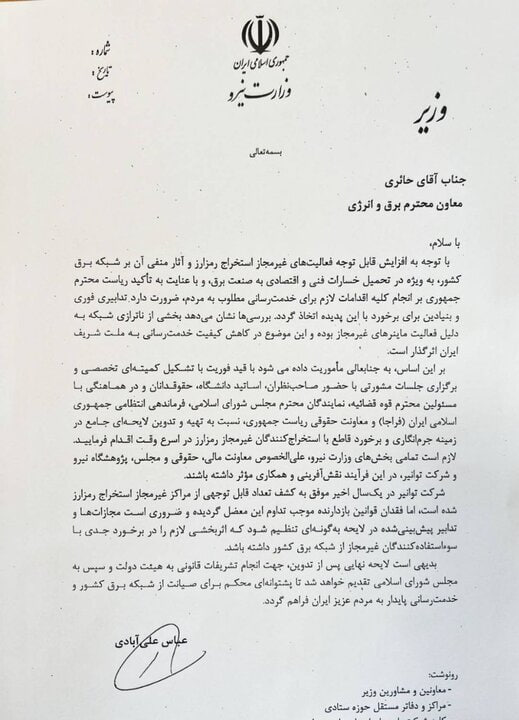 جمهوری اسلامی ایران
وزارت نیرو
وزیر
شماره :
تاریخ :
پیوست :
بسمه‌تعالی
جناب آقای حائری
معاون محترم برق و انرژی
با سلام،
با توجه به افزایش قابل توجه فعالیت‌های غیرمجاز استخراج رمزارز و آثار منفی آن بر شبکه برق
کشور، به ویژه در تحمیل خسارات فنی و اقتصادی به صنعت برق، و با عنایت به تأکید ریاست محترم
جمهوری بر انجام کلیه اقدامات لازم برای خدمت‌رسانی مطلوب به مردم، ضرورت دارد تدابیری فوری
و بنیادین برای برخورد با این پدیده اتخاذ گردد. بررسی‌ها نشان می‌دهد بخشی از ناترازی شبکه به
دلیل فعالیت ماینرهای غیرمجاز بوده و این موضوع در کاهش کیفیت خدمت‌رسانی به ملت شریف
ایران اثرگذار است.
بر این اساس، به جنابعالی مأموریت داده می شود با قید فوریت با تشکیل کمیته‌ای تخصصی و
برگزاری جلسات مشورتی با حضور صاحب‌نظران، اساتید دانشگاه، حقوقدانان و در هماهنگی با
مسئولین محترم قوه قضائیه، نمایندگان محترم مجلس شورای اسلامی، فرماندهی انتظامی جمهوری
اسلامی ایران (فراجا) و معاونت حقوقی ریاست جمهوری، نسبت به تهیه و تدوین لایحه‌ای جامع در
زمینه جرم‌انگاری و برخورد قاطع با استخراج‌کنندگان غیرمجاز رمزارز در اسرع وقت اقدام فرمایید.
لازم است تمامی بخش‌های وزارت نیرو، علی‌الخصوص معاونت مالی، حقوقی و مجلس، پژوهشگاه نیرو
و شرکت توانیر، در این فرآیند نقش‌آفرینی و همکاری مؤثر داشته باشند.
شرکت توانیر در یک‌سال اخیر موفق به کشف تعداد قابل توجهی از مراکز غیرمجاز استخراج رمزارز
شده است، اما فقدان قوانین بازدارنده موجب تداوم این معضل گردیده و ضروری است مجازات‌ها و
تدابیر پیش‌بینی‌شده در لایحه به‌گونه‌ای تنظیم شود که اثربخشی لازم را در برخورد جدی با
سوءاستفاده‌کنندگان غیرمجاز از شبکه برق کشور داشته باشد.
بدیهی است لایحه نهایی پس از تدوین، جهت انجام تشریفات قانونی به هیئت دولت و سپس به
مجلس شورای اسلامی تقدیم خواهد شد تا پشتوانه‌ای محکم برای صیانت از شبکه برق کشور و
خدمت‌رسانی پایدار به مردم عزیز ایران فراهم گردد.
عباس علی‌آبادی
رونوشت:
- معاونین و مشاورین وزیر
- مراکز و دفاتر مستقل حوزه ستادی